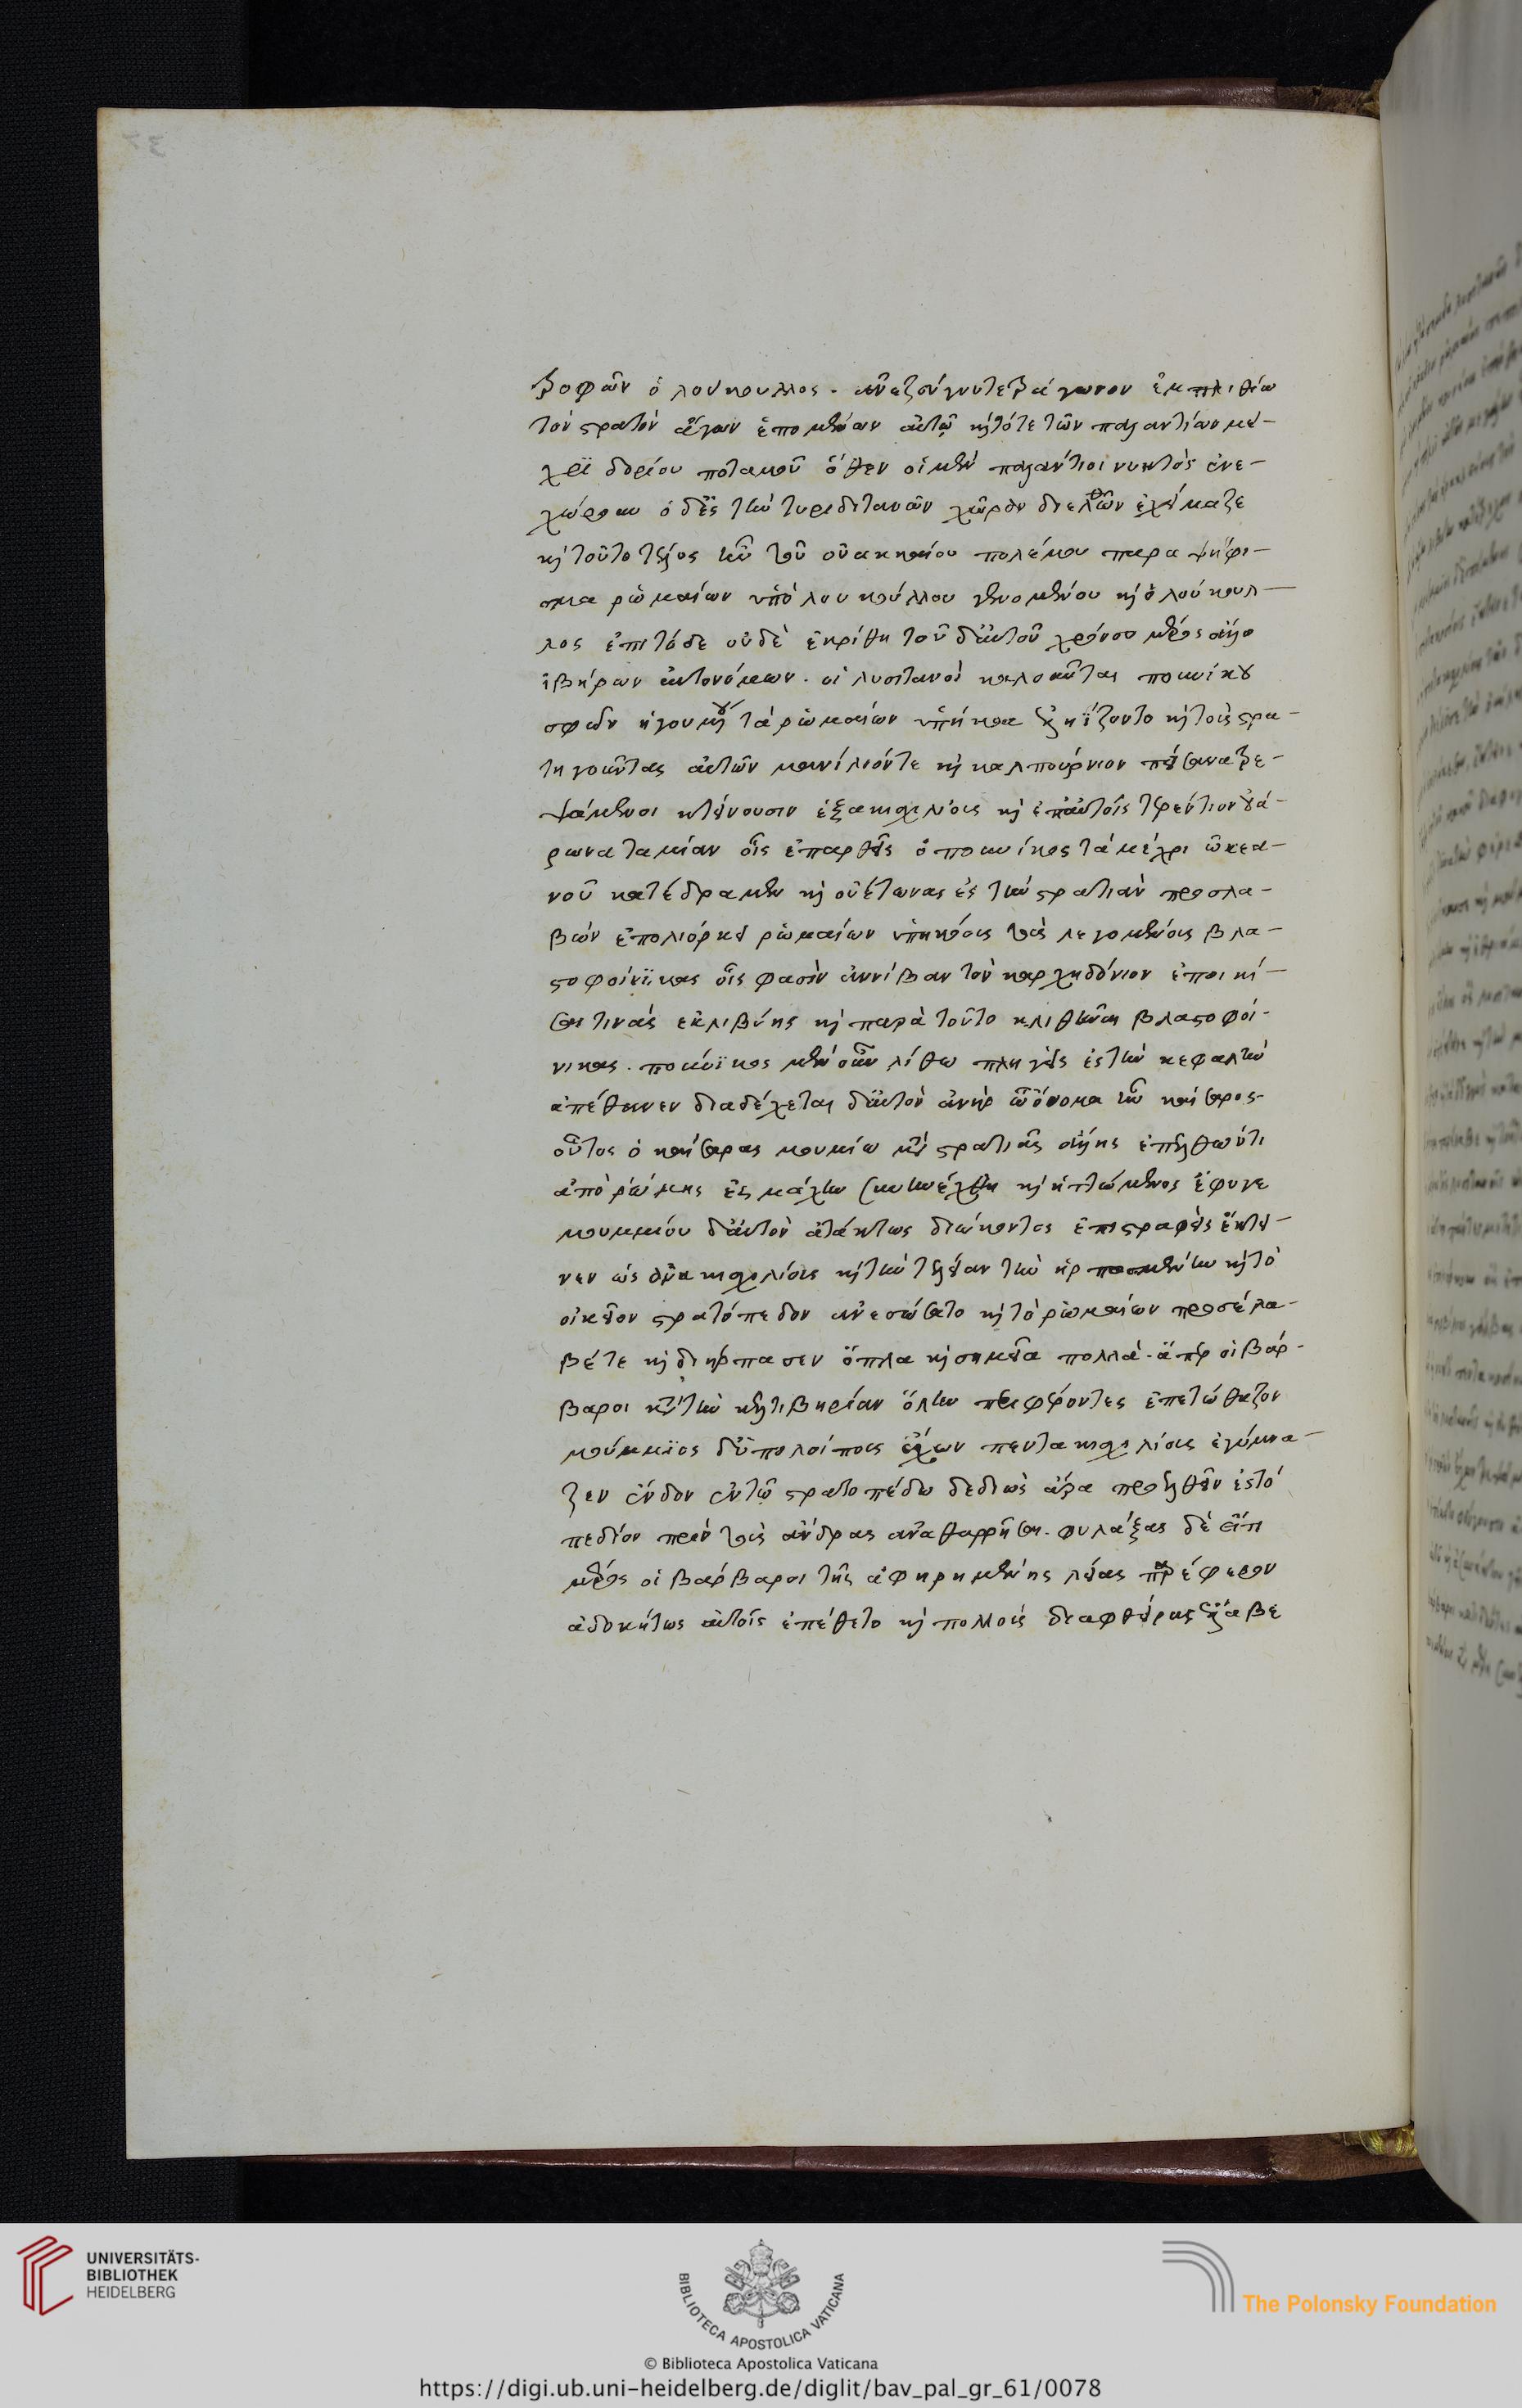 τροφῶν ὁ λούκουλλος. ἀνεζεύγνυ τετράγωνον ἐν πλιθίω
τὸν στρατὸν ἄγων ἑπομένων αὐτῷ καὶ τότε τῶν παλαντίων μέ-
χρι δορίου ποταμοῦ ὅθεν οἱ μὲν παλάντιοι νυκτὸς ἀνε-
χώρουν ὁ δ' ἐς τὴν τυρδιτανῶν χώραν διελθὼν ἐχείμαζε
καὶ τοῦτο τέλος ἦν τοῦ οὐακκαίου πολέμου παρὰ ψήφι-
σμα ῥωμαίων ὑπὸ λουκούλλου γενομένου καὶ ὁ λούκουλ-
λος ἐπὶ τόδε οὐδὲ ἐκρίθη τοῦ δ' αὐτοῦ χρόνου μέρος ἄλλο
ἰβήρων αὐτονόμων. οἳ λυσιτανοὶ καλοῦνται ποινίκου
σφῶν ἡγουμένου τὰ ῥωμαίων ὑπήκοα ἐληΐζοντο καὶ τοὺς στρα-
τηγοῦντας αὐτῶν μανίλιόν τε καὶ καλπούρνιον πείσωνα τρε-
ψάμενοι κτείνουσιν ἑξακισχιλίους καὶ ἐπ' αὐτοῖς τερέντιον οὐά-
ρωνα ταμίαν οἷς ἐπαρθεὶς ὁ ποινίκος τὰ μέχρι ὠκεα-
νοῦ κατέδραμεν καὶ οὐέτωνας ἐς τὴν στρατιὰν προσλα-
βὼν ἐπολιόρκει ῥωμαίων ὑπηκόους τοὺς λεγομένους βλα-
στοφοίνικας οἷς φασὶν ἀννίβαν τὸν καρχηδόνιον ἐποικί-
σαι τινὰς ἐκ λιβύης καὶ παρὰ τοῦτο κλιθῆναι βλαστοφοί-
νικας. ποινίκος μὲν οὖν λίθω πληγεὶς ἐς τὴν κεφαλὴν
ἀπέθανεν διαδέχεται δ' αὐτὸν ἀνὴρ ὧ ὄνομα ἦν καίσαρος
οὗτος ὁ καίσαρας μουμίω μετὰ στρατιᾶς ἄλλης ἐπελθόντι
ἀπὸ ῥώμης ἐς μάχην συνηνέχθη καὶ ἡττώμενος ἔφυγε
μουμμίου δ' αὐτὸν ἀτάκτως διώκοντος ἐπιστραφεὶς ἔκτει-
νεν ὡς ἐνακισχιλίους καὶ τὴν τε λείαν τὴν ἡρπασμένην καὶ τὸ
οἰκεῖον στρατόπεδον ἀνεσώσατο καὶ τὸ ῥωμαίων προσέλα-
βέ τε καὶ διήρπασεν ὅπλα καὶ σημεῖα πολλά. ἅπερ οἱ βάρ-
βαροι κατὰ τὴν κελτιβηρίαν ὅλην περιφέροντες ἐπετώθαζον
μούμμιος δ' ὑπολοίπους ἔχων πεντακισχιλίους ἐγύμνα-
ζεν ἔνδον ἐν τῷ στρατοπέδω δεδιὼς ἄρα προελθεῖν ἐς τὸ
πεδίον πρὶν τοὺς ἄνδρας ἀναθαρρῆσαι. φυλάξας δὲ εἴ τι
μέρος οἱ βάρβαροι τῆς ἀφηρημένης λείας παρέφερον
ἀδοκήτως αὐτοῖς ἐπέθετο καὶ πολλοὺς διαφθείρας ἔλαβε
UNIVERSITÄTS-
BIBLIOTHEK
HEIDELBERG
BIBLIOTECA APOSTOLICA VATICANA
The Polonsky Foundation
© Biblioteca Apostolica Vaticana
https://digi.ub.uni-heidelberg.de/diglit/bav_pal_gr_61/0078